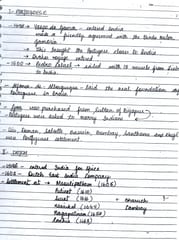 I - PORTUGUESE
- 1498 - Vasco da Gama - entered India
with a friendly agreement with the Hindu ruler
Zamorin
- This brought the Portugese closer to India
- Arabia voyage entered
- 1500 - Pedro Cabral - sailed with 13 vessels from Lisbon
to India
- Alfonso de Albuquerque - laid the real foundation of
Portugese in India
- Goa was purchased from Sultan of Bijapur
- Portugese were asked to marry Indians
- Diu, Daman, Salsette, Bassein, Bombay, Santhome and Hugli
were Portuguese settlement
I - DUTCH
- 1596 - entered India for Spice
- 1602 - Dutch East India Company
- Settlement at → Masulipatnam (1605)
Pulicat (1610)
Surat (1616)
Karaikal (1645)
Nagapatinam (1658)
Cochin (1663)
Bombay